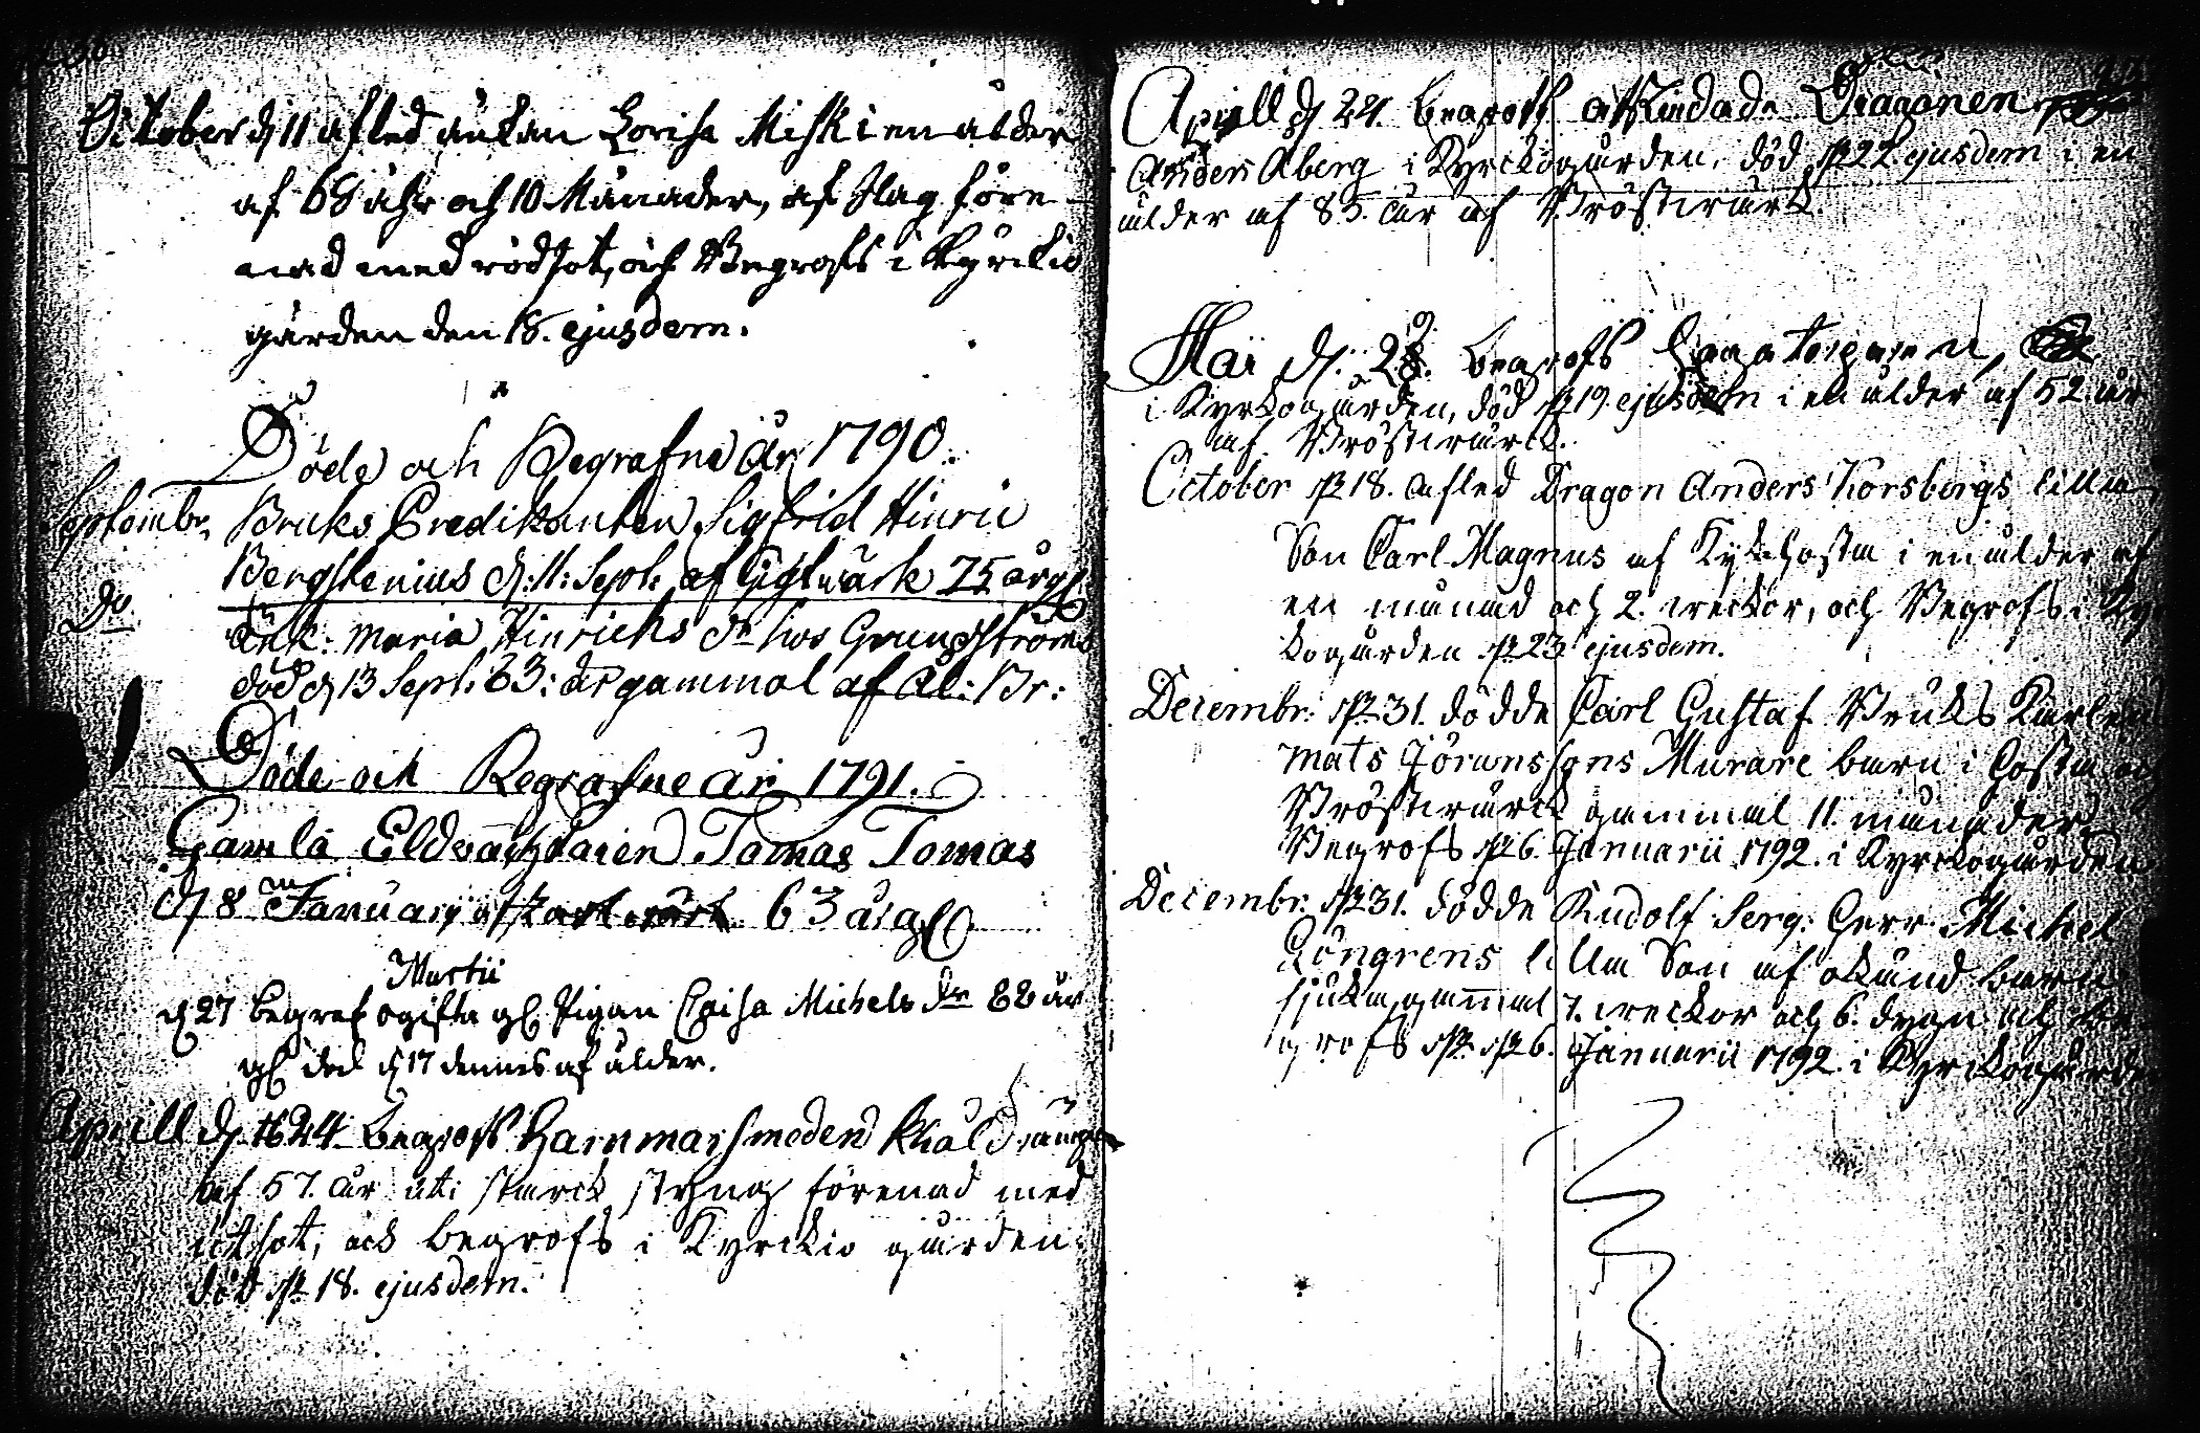 October d 11 afled änkan Lovisa Misk i en ålder
af 68 åhr och 10 Månader, af slag före-
nad med rödsot, och Begrofs i Kyrckio
gården den 18. ejusdem.
Döde och Begrafne år 1790.
Septembr. Bruks Predikanten Sigfrid Hinric
Bergstenius d: 11: Sept: af 75 år gl
Do. Änk: Maria Hinrichs dr hos Grundströms
död d 13 Sept: 63: år gammal af Ål: Br:
Döde och Begrafne år 1791.
Gamla Tomas Tomas
d 8 Januarij af 63 år gl
Martii
d 27 begrof ogifta gl Pigan Caisa Michels dr 88 år
gl död d 17 dennes af ålder.
Aprill d. 24 begrofs Hammarsmeden
af 57. år uti starck styng förenad med
, och begrofs i Kyrckio gården.
död d 18. ejusdem.
Aprill d 24. begrofs afskiedade Dragonen
Anders Aberg i Kyrckogården, död d 22 ejusdem i en
ålder af 83. år af Bröstwärk.
Maii d. 29. begrofs
i Kyrkogården, död d 19. ejusdem i en ålder af 52 år
af Bröstwärck.
October d 18. afled Dragon Anders Korsbergs lilla
Son Carl Magnus af Kykhosta i en ålder af
en månad och 2. weckor, och Begrofs i Kyr
kogården d 23 ejusdem.
Decembr: d 31. dödde Carl Gustaf Bruks Karlen
Mats Jöranssons Murare barn i hosta och
Bröstwärck gammal 11. månader
Begrofs d 6. Januarii 1792. i Kyrckogården
Decembr: d 31. dödde Rudolf Serg: Herr Michel
Löngrens lilla Son af okänd barn
sjuka, gammal 7. weckor och 6. dygn och be
grofs d 6. Januarii 1792. i Kyrckogården